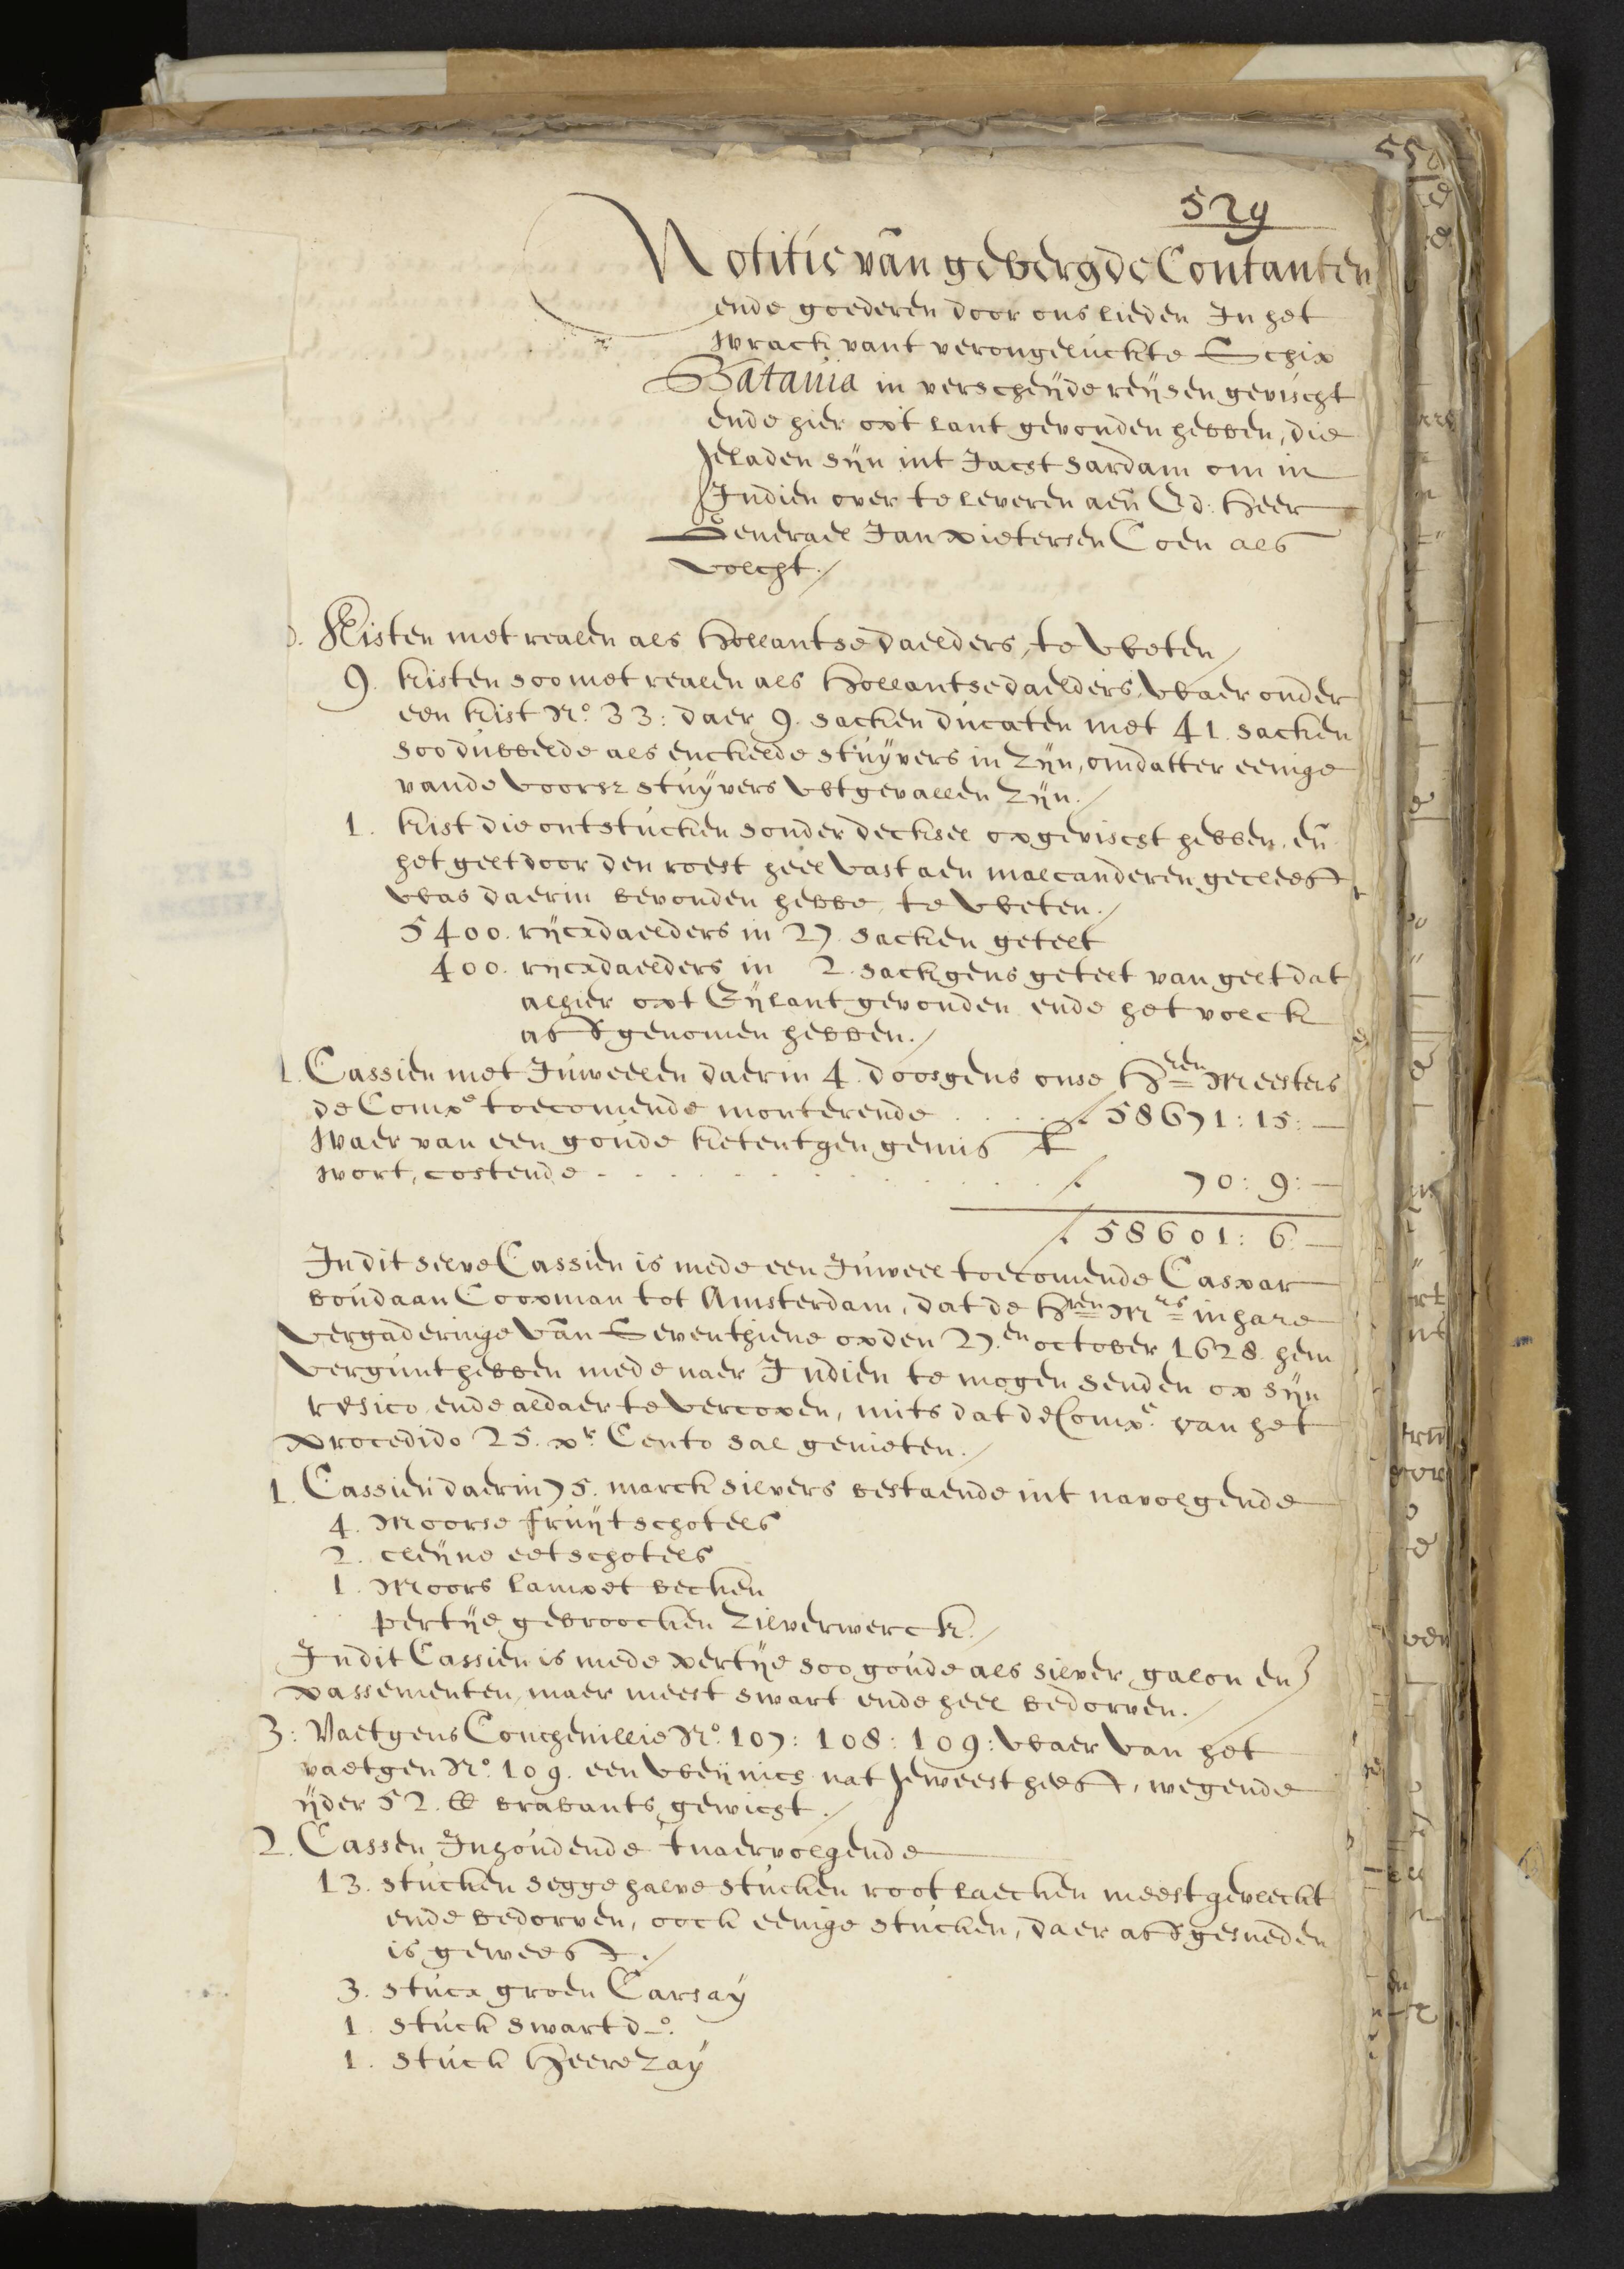 529
Notitie van gebergde Contanten
ende goederen door ons lieden In het
wrack vant verongeluckte Schip
Batauia in verscheijde reijsen gevischt
ende hier opt lant gevonden hebben, die
geladen sijn int Jacht Sardam om in
Indien over te leveren aen Ed: Heer
Generael Jan Pietersen Coen als
volcht./
Kisten met realen als Hollantse daelders, te weten/
9. kisten soo met realen als Hollantse daelders, waer onder
een kist No. 33: daer 9. sacken ducaten met 41. sacken
soo dubbelde als enckelde stuijvers in zijn, omdatter eenige
vande voorsz stuijvers wtgevallen zijn./
1. kist die ontstucken sonder decksel opgevischt hebben, en
het gelt door den roest heel vast aen malcanderen gecleeft
was daerin bevonden hebbe, te weten./
5400. rijcxdaelders in 27. sacken getelt
400. rijcxdaelders in 2. sackgens getelt van gelt dat
alhier opt Eijlant gevonden ende het volck
aff genomen hebben./
1. Cassien met Juweelen daerin 4. doosgens onse Hren Meesters
de Compe toecomende monterende . . . . 58671: 15: —
waer van een goude ketentgen gemist
wort, costende . . . . . . . . 70: 9: —
58601: 6: —
In dit selve Cassien is mede een Juweel toecomende Caspar
boudaan Coopman tot Amsterdam, dat de Hren Mrs in hare
vergaderinge van Seventhiene op den 27.en october 1628. hem
vergunt hebben mede naer Indien te mogen senden op sijn
resico ende aldaer te vercopen, mits dat de Compe. van het
procedido 25. pr. Cento sal genieten./
1. Cassien daerin 75. marck silvers bestaende int navolgende
4. Moorse fruijtschotels
2. cleijne eetschotels
1. Moors lampet becken
pertije gebroocken zilverwerck./
In dit Cassien is mede pertije soo goude als silver galon en
passementen, maer meest swart ende heel bedorven./
3: Vaetgens Conchenillie No. 107: 108: 109: waer van het
vaetgen No. 109. een weijnich nat geweest heeft, wegende
ijder 52. lb brabants gewicht./
2. Cassen Inhoudende tnaervolgende
13. stucken segge halve stucken root laecken meest gevleckt
ende bedorven, oock eenige stucken, daer aff gesneden
is geweest./
3. stucx groen Carsaij
1. stuck swart do.
1. stuck Heere zaij